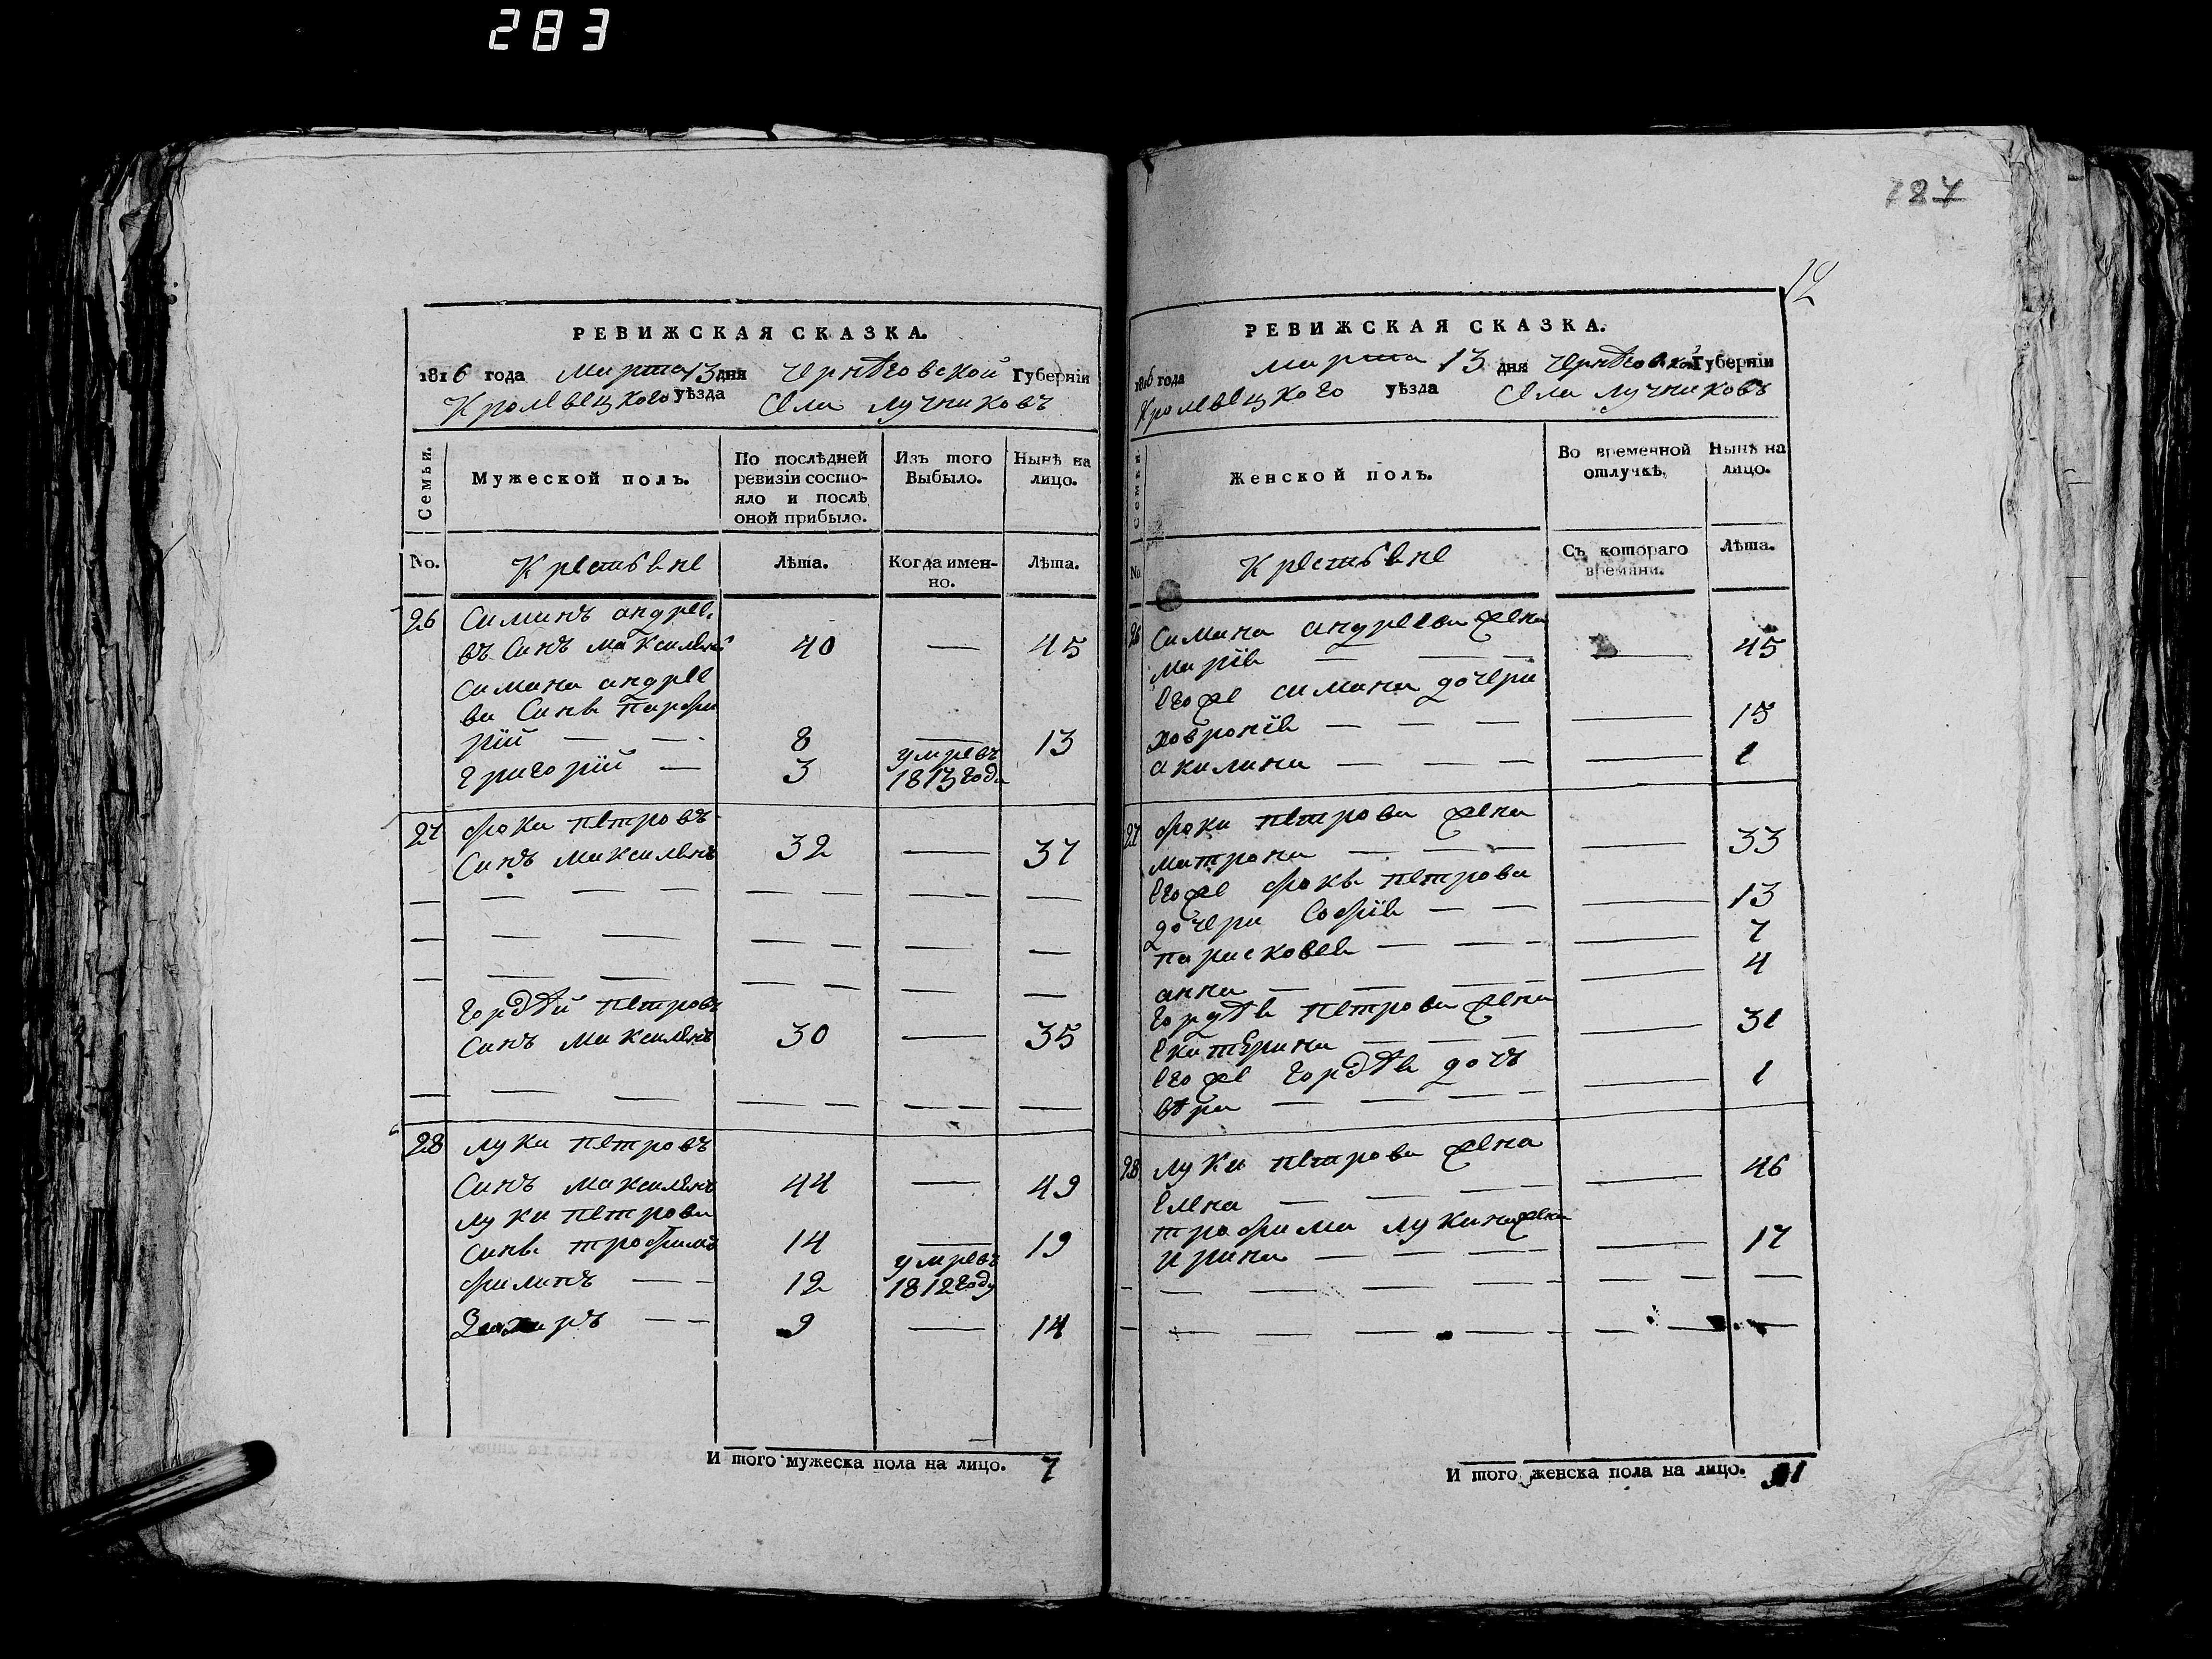 283
127
12
РЕВИЖСКАЯ СКАЗКА.
1816 года марта 13 дня Чернѣговской Губерніи
Кролевецкого уѣзда Села Лучниковъ
Семьи.
Мужеской полъ.
По послѣдней ревизіи состояло и послѣ оной прибыло.
Изъ того Выбыло.
Нынѣ на лицо.
No.
Крестьяне
Лѣта.
Когда именно.
Лѣта.
26 Симанъ андрее
въ Синъ Максименко 40 — 45
Симана андрее
ва Синъ парфи
рій — — 8 — 13
григорій — 3 умре въ 1813 года
27 фока петровъ
Синъ Максименко 32 — 37
— — — — — — — —
— — — — — — —
— — — — — — —
гордѣй петровъ
Синъ Максименко 30 — 35
— — — — — — — —
28 лука петровъ
Синъ Максименко 44 — 49
луки петрова
Синъ трофимъ 14 — 19
филипъ — — 12 умре въ 1812 году
Захаръ — — 9 — 14
И того мужеска пола на лицо. 7
РЕВИЖСКАЯ СКАЗКА.
1816 года марта 13 дня Чернѣговской Губерніи
Кролевецкого уѣзда Села Лучниковъ
Семьи
Женской полъ.
Во временной отлучкѣ.
Нынѣ на лицо.
No.
Крестьяне
Съ котораго времяни.
Лѣта.
26 Симана андреева жена
марія — — — — 45
егоже симана дочери
ховронія — — — — 15
акилина — — — — 1
27 фоки петрова жена
матрона — — — — 33
егоже фоки петрова
дочери Софія — — — 13
парисковея — — — — 7
анна — — — — 4
гордѣя петрова жена
екатерина — — — — 31
егоже гордѣя дочъ
вѣра — — — — — 1
28 луки петрова жена
елена — — — — 46
трофима лукина жена
ирина — — — — 17
— — — — — — — —
— — — — — — — —
И того женска пола на лицо. 11